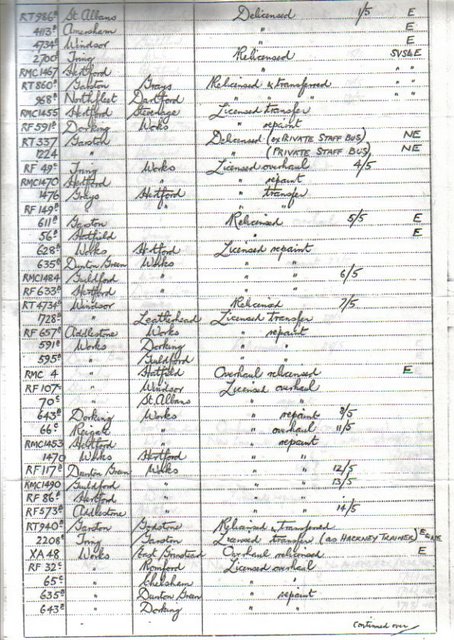 RT986 St. Albans Delicensed 1/5 E
4113 Amersham " E
4734 Windsor " E
2700 Tring Relicensed SVS&E
RMC1467 Hertford " " "
RT860 Garston Grays Relicensed & transferred " "
968 Northfleet Dartford " " " " "
RMC1455 Hertford Stevenage Licensed transfer
RF591 Dorking Works " repaint
RT337 Garston Delicensed (ex PRIVATE STAFF BUS) NE
1224 " " (PRIVATE STAFF BUS) NE
RF 49 Tring Works Licensed overhaul 4/5
RMC1470 Hertford " " repaint
1476 Grays Hertford " transfer
RF 149 " " " "
611 Garston Relicensed 5/5 E
56 Hatfield " E
628 Works Hertford Licensed repaint
635 Dunton Green Works " "
RMC1484 Guildford " " " 6/5
RF633 Hertford " " "
RT4734 Windsor Relicensed 7/5
1728 " Leatherhead Licensed transfer
RF 657 Addlestone Works " repaint
591 Works Dorking " "
595 " Guildford " "
RMC 4 " Hatfield Overhaul relicensed E
RF 107 " Windsor Licensed overhaul
70 " St. Albans " "
643 Dorking Works " repaint 8/5
66 Reigate " " overhaul 11/5
RMC1453 Hertford " " repaint
1470 Works Hertford " "
RF117 Dunton Green Works " " 12/5
RMC1490 Guildford " " " 13/5
RF 86 Hertford " " "
RF573 Addlestone " " " 14/5
RT940 Garston Relicensed & transferred
2208 Tring Garston Licensed transfer (as HACKNEY TRAINER)
XA 48 Works East Grinstead Overhaul relicensed E
RF 32 " Romford Licensed overhaul
65 " Chelsham " "
635 " Dunton Green " repaint
643 " Dorking " "
Continued over